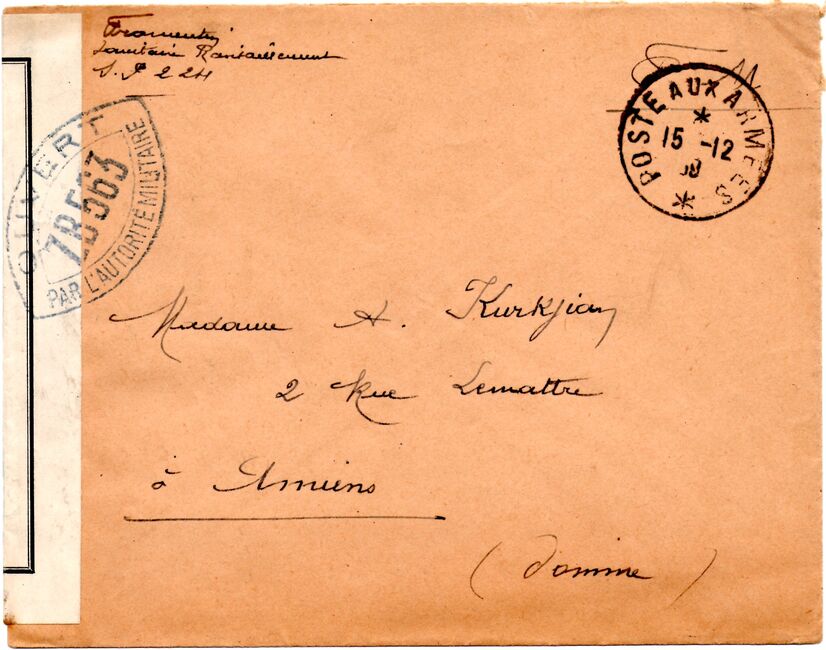 Fromentin
Sanitaire Ravitaillement
S. P 224
F M
POSTE AUX ARMEES
15 -12
39
OUVERT
ZB563
PAR L'AUTORITÉ MILITAIRE
Madame A. Kurkjian
2 Rue Lemattre
à Amiens
(Somme)